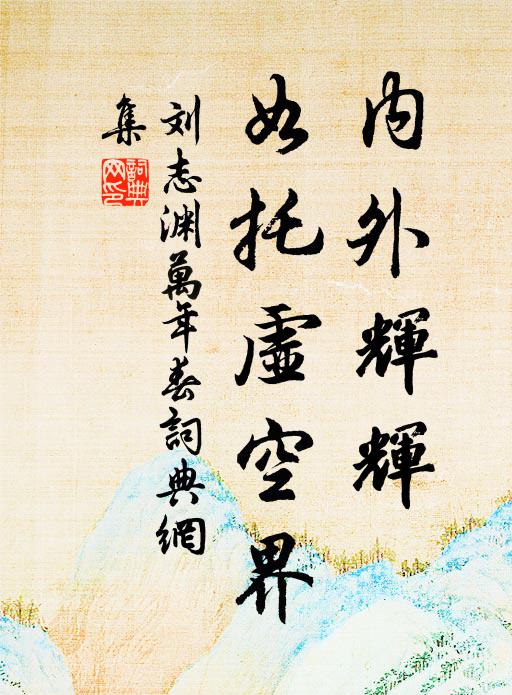 内外輝輝
如托虛空界
刘志渊萬年春詞典網
集
詞典
网印